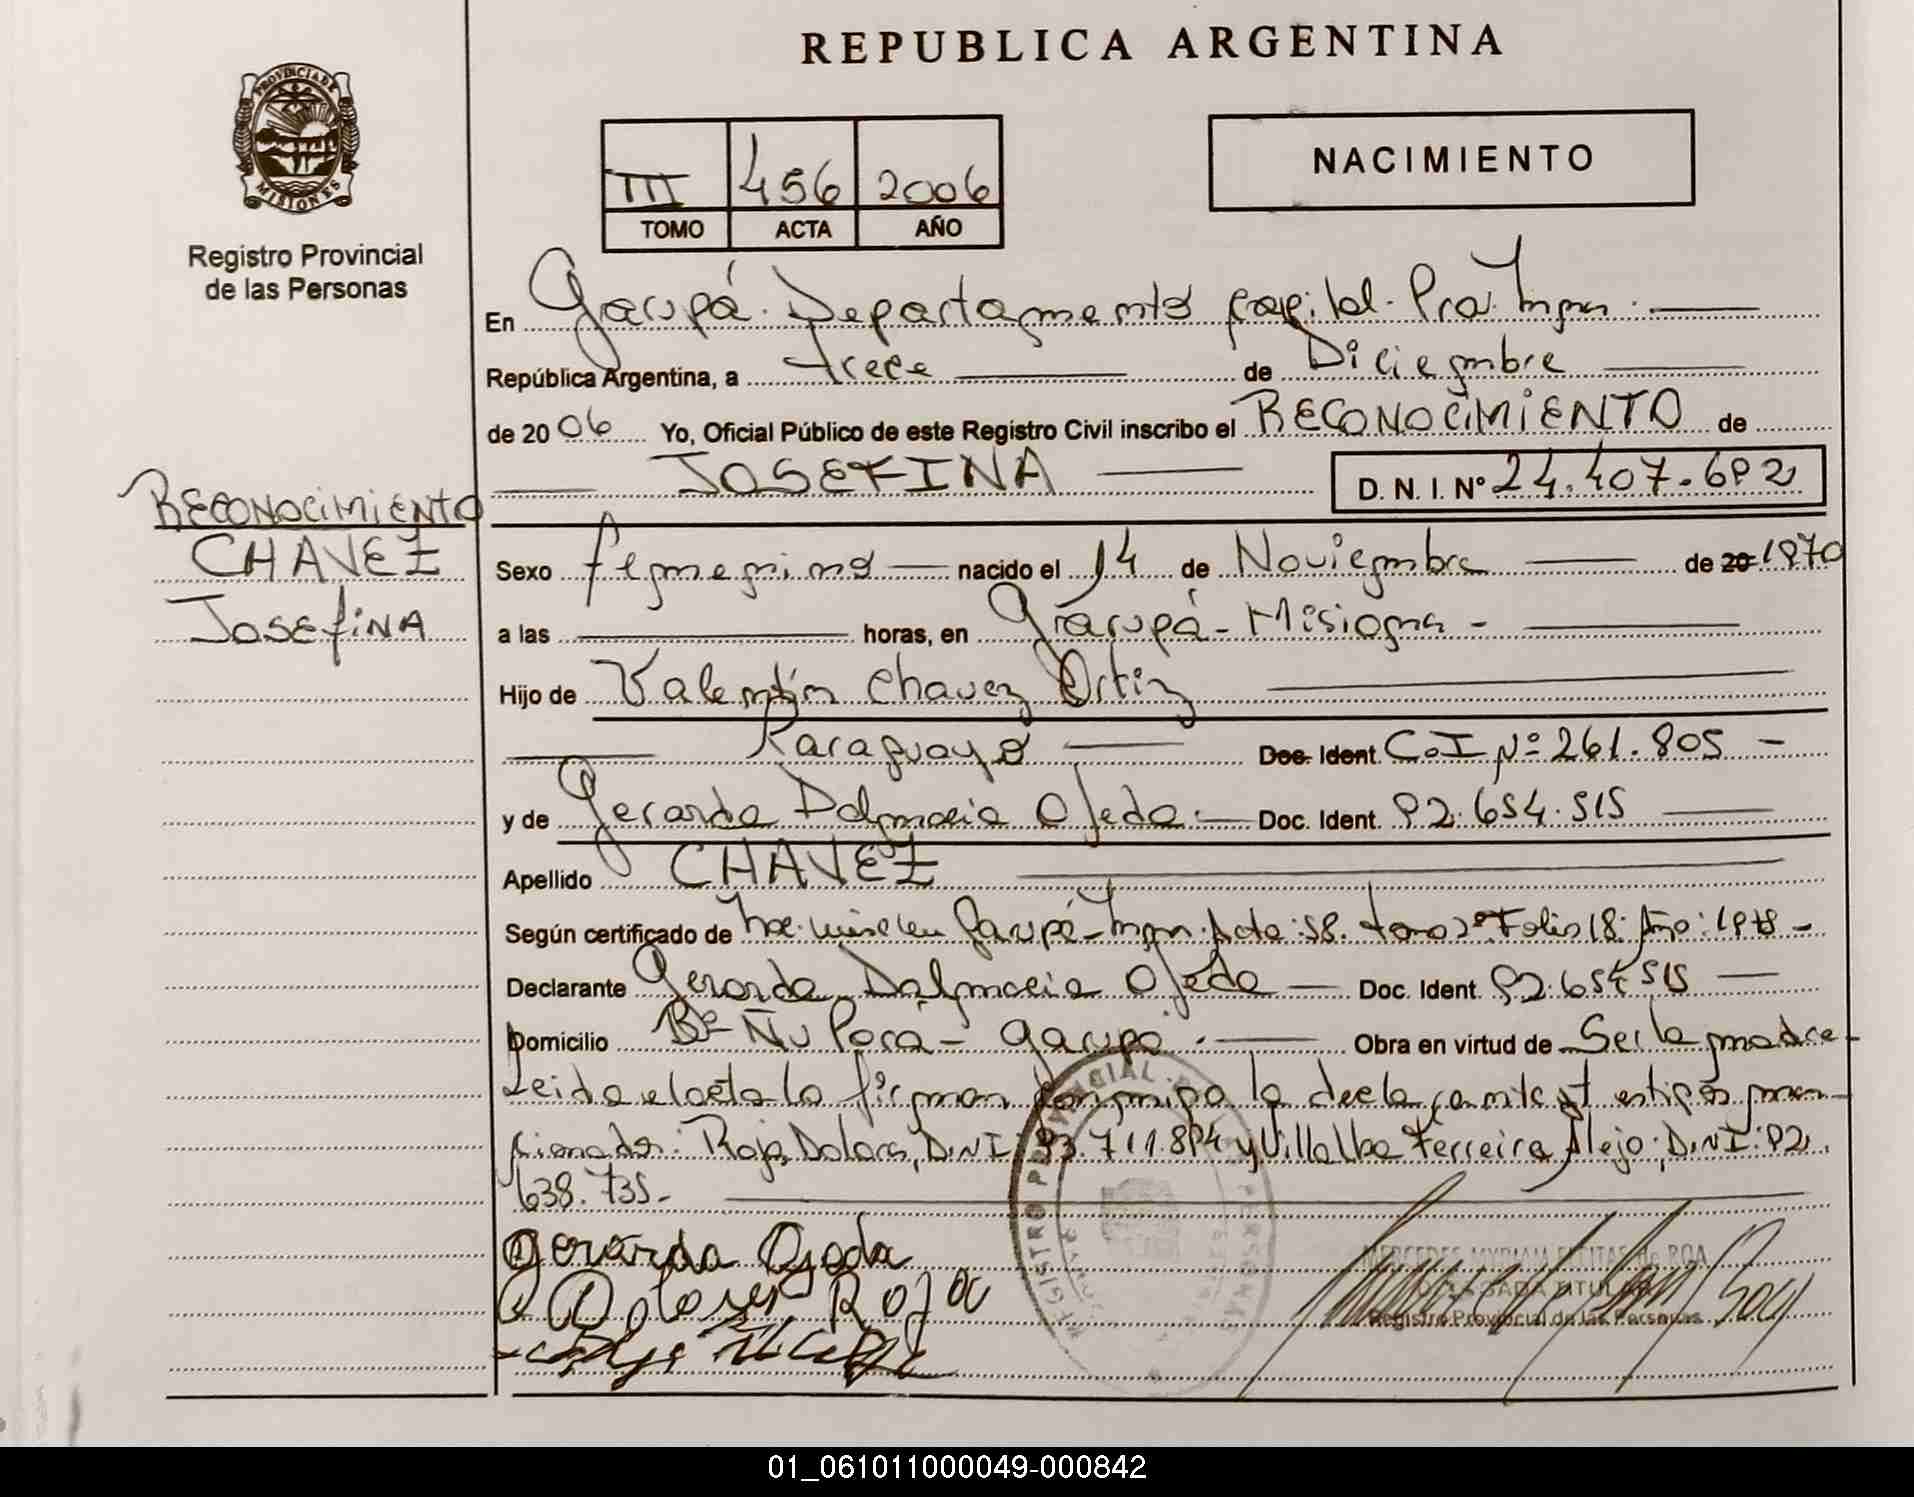 REPUBLICA ARGENTINA
PROVINCIA DE
MISIONES
Registro Provincial
de las Personas
III 456 2006
TOMO ACTA AÑO
NACIMIENTO
En Garupá. Departamento Capital.
República Argentina, a trece de Diciembre
de 2006 Yo, Oficial Público de este Registro Civil inscribo el RECONOCIMIENTO de
JOSEFINA D. N. I. Nº 24.407.692
RECONOCIMIENTO
CHAVEZ
JOSEfiNA
Sexo femenino nacido el 14 de Noviembre de 20 1970
a las horas, en Garupá - Misiones -
Hijo de Valentín Chavez Ortiz
Paraguayo Doc. Ident. C.I Nº 261.805 -
y de Gerarda Dalmacia Ojeda. Doc. Ident. 92.654.515
Apellido CHAVEZ
Según certificado de Garupá Acta: 58. tomo 2º Folio 18. Año:
Declarante Gerarda Dalmacia Ojeda Doc. Ident. 92.654515
Domicilio Bº Ñu Porá - Garupá. Obra en virtud de Ser la madre -
Leida el acta la firman conmigo la declarante y testigos men-
cionados: Roja Dolores, D.N.I: 93.711.894 y Villalba Ferreira Alejo; D.N.I: 92.
638.735.
Gerarda Ojeda
Dolores Roja
REGISTRO PROVINCIAL DE PERSONAS
MERCEDES MYRIAM de ROA
DELEGADA TITULAR
Registro Provincial de las Personas
01_061011000049-000842